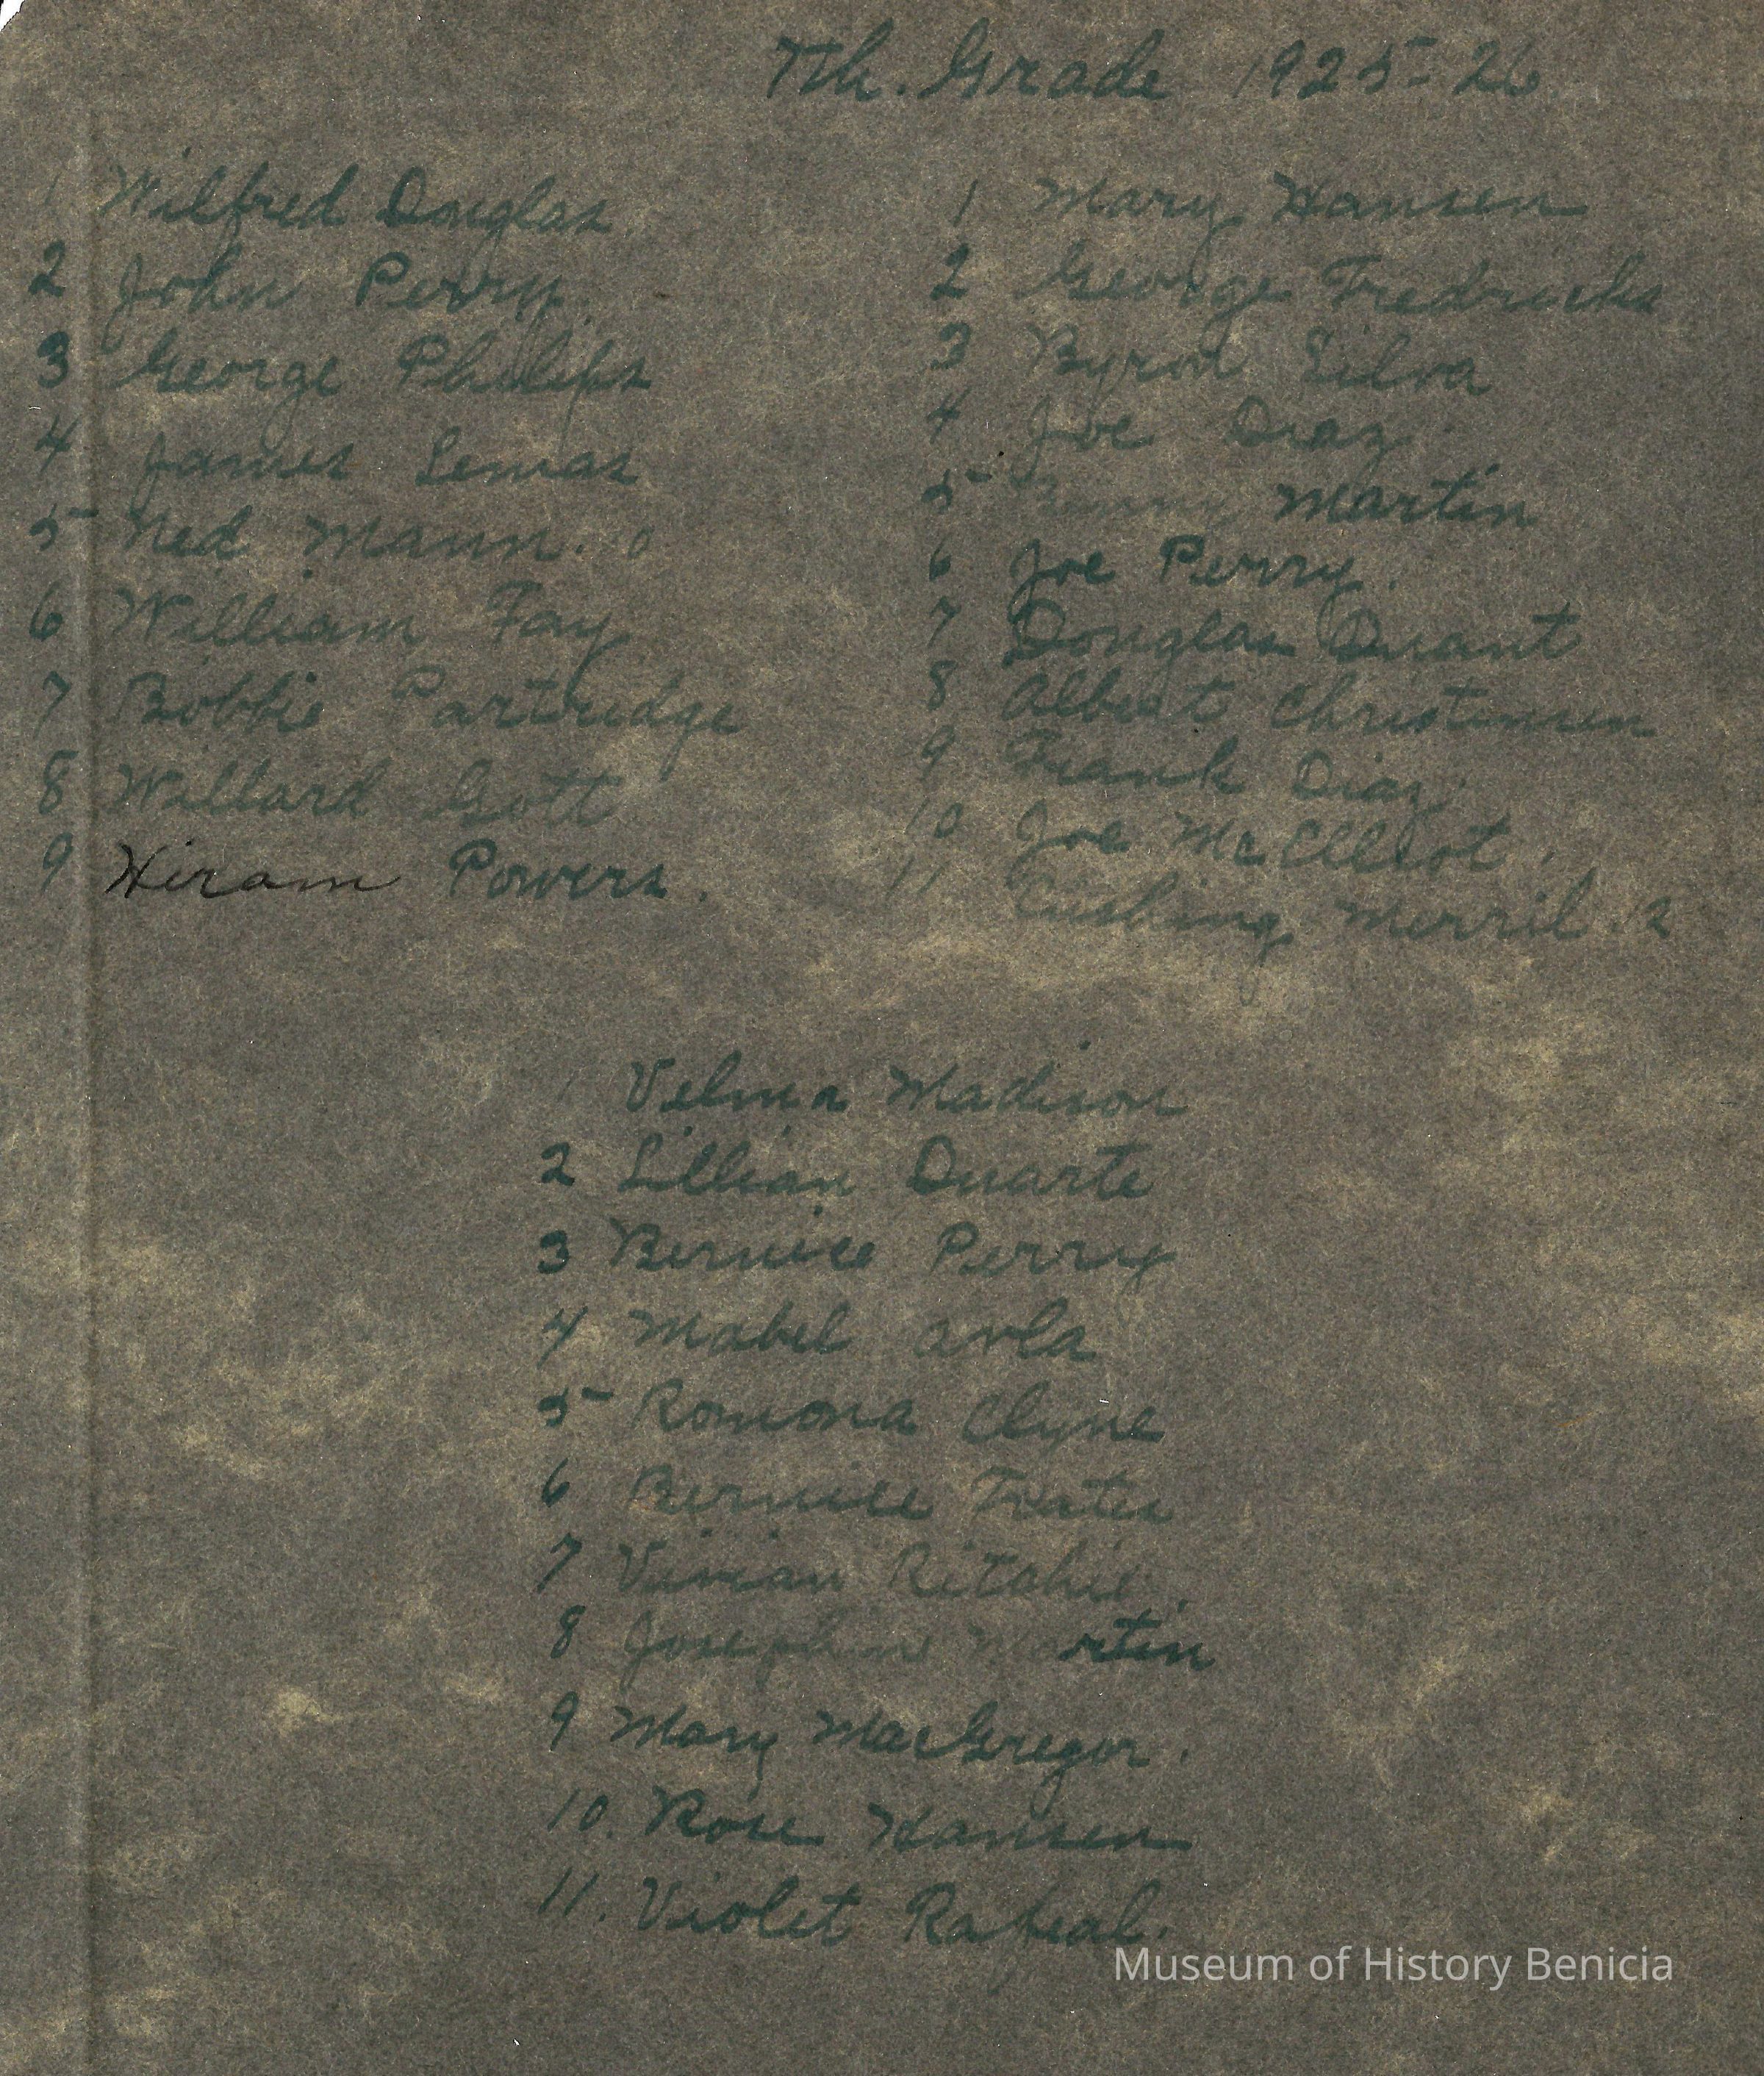 7th. Grade 1925-26
1 Wilfred Douglas
2 John Perry.
3 George Phillips
4 James Lemas
5 Ned Mann. 0
6 William Fay
7 Bobbie Partridge
8 Willard Gott
9 Hiram Powers.
1 Mary Hansen
2 George Fredricks
3 Byron Silva
4 Joe Diaz.
5 Martin
6 Joe Perry.
7 Douglas Duant
8 Albert Christensen
9 Frank Diaz.
10 Joe McElliot.
11 Cushing Merril. 12
1 Velma Madison
2 Lillian Duarte
3 Bernice Perry
4 Mabel Avla
5 Romona Clyne
6 Bernice
7 Vivian Ritchie.
8 Josephine Martin
9 Mary MacGregor.
10. Rose Hansen
11. Violet Rafeal.
Museum of History Benicia